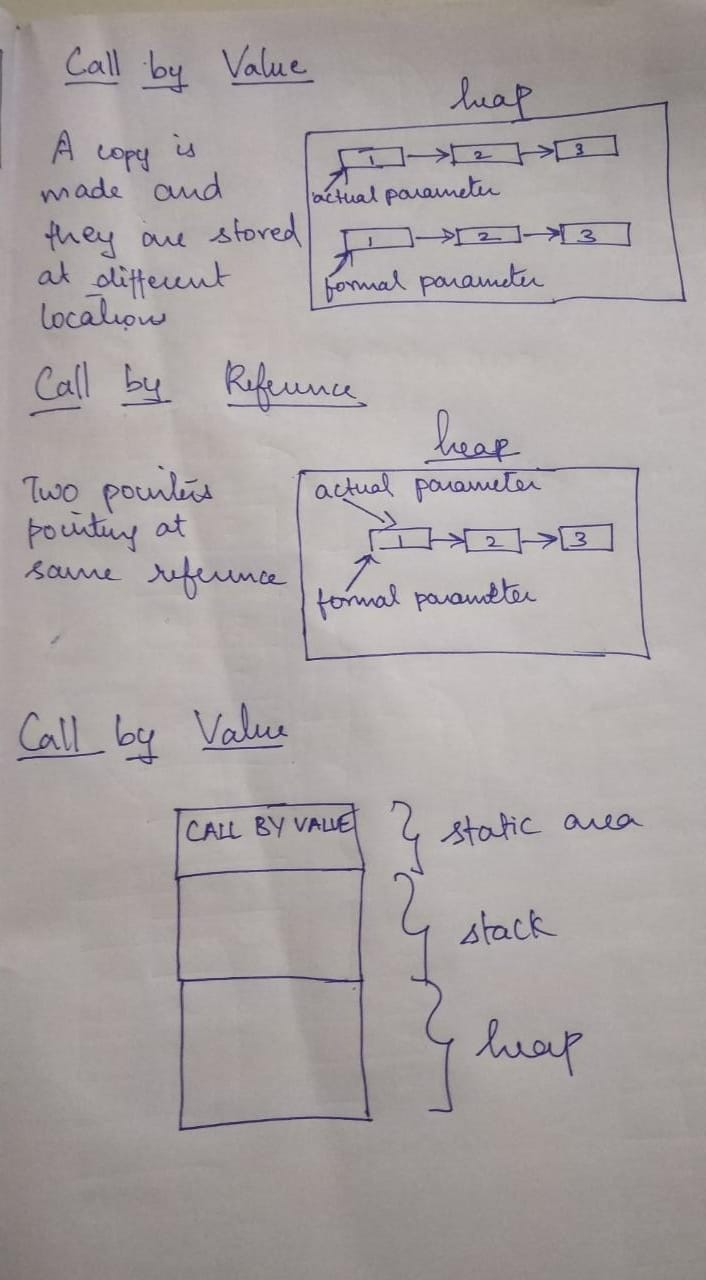 Call by Value
heap
A copy is
made and
they are stored
at different
locations
1 → 2 → 3
actual parameter
1 → 2 → 3
formal parameter
Call by Reference
heap
Two pointers
pointing at
same reference
actual parameter
1 → 2 → 3
formal parameter
Call by Value
CALL BY VALUE
static area
stack
heap